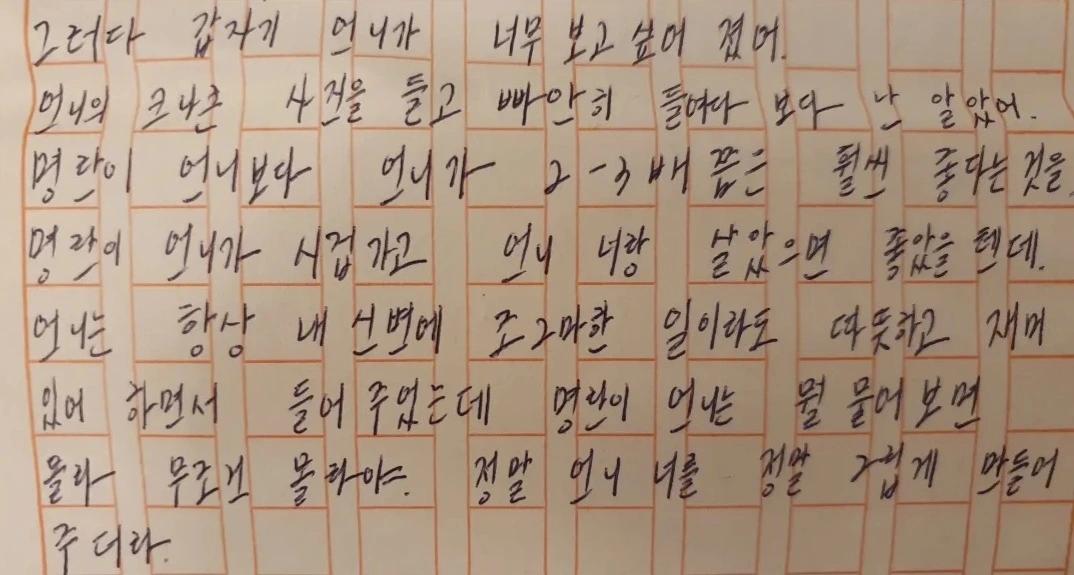 그러다 갑자기 언니가 너무 보고 싶어 졌어.
언니의 크나큰 사진을 들고 빠안히 들여다 보다 난 알았어.
명란이 언니보다 언니가 2-3배 쯤은 훨씬 좋다는 것을.
명란이 언니가 시집가고 언니 너랑 살았으면 좋았을 텐데.
언니는 항상 내 신변에 조그마한 일이라도 따뜻하고 재미
있어 하면서 들어 주었는데 명란이 언니는 뭘 물어 보면
몰라 무조건 몰라야. 정말 언니 너를 정말 그립게 만들어
주더라.